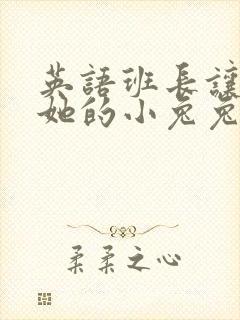 英語班長讓
她的小兔兔
柔柔之心